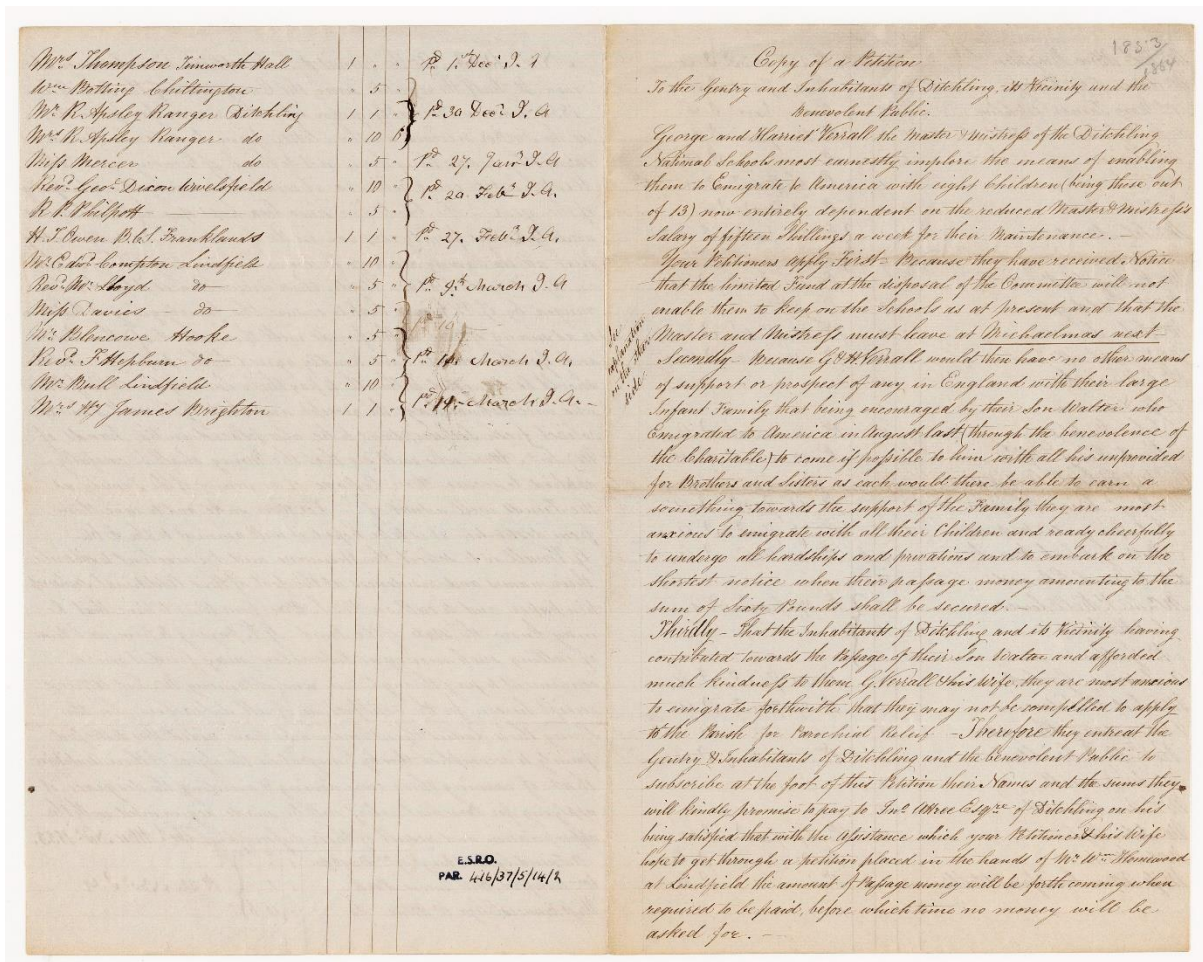 Mrs Thompson Tinworth Hall 1 " "
Wm Botting Chittington " 5 "
pd 1st Decr I. A
Mr R. Apsley Ranger Ditchling 1 1 "
Mrs R. Apsley Ranger do " 10 6
pd 30 Decr I. A
Miss Mercer do " 5 "
pd 27. Janr I. A
Revd Geo: Dixon Wivelsfield " 10 "
R. P. Philpott " 5 "
pd 20. Feby I. A.
H. T. Owen Franklands 1 1 "
pd 27. Feby I. A.
Mr Edwd Compton Lindfield " 10 "
Revd Mr Lloyd do " 5 "
Miss Davies - do " 5 "
pd 9th March I. A
Mr Blencowe Hooke " 5 "
Revd F. Hepburn do " 5 "
March I. A.
Mr Bull Lindfield " 10 "
Mrs Hy James Brighton 1 1 "
pd 14th March I. A. -
E.S.R.O.
PAR. 416/37/5/14/2
1853/
1854
Copy of a Petition
To the Gentry and Inhabitants of Ditchling, its Vicinity and the
Benevolent Public.
George and Harriet Verrall the Master & Mistress of the Ditchling
National Schools most earnestly implore the means of enabling
them to Emigrate to America with eight Children (being those out
of 13) now entirely dependent on the reduced Master & Mistress's
Salary of fifteen Shillings a week for their Maintenance. -
Your Petitioners apply First - Because they have received Notice
that the limited Fund at the disposal of the Committee will not
enable them to keep on the Schools as at present and that the
Master and Mistress must leave at Michaelmas next
See
explanation
on the other
side
Secondly - Because G & H Verrall would then have no other means
of support or prospect of any in England with their large
Infant Family that being encouraged by their Son Walter who
Emigrated to America in August last (through the benevolence of
the Charitable) to come if possible to him with all his unprovided
for Brothers and Sisters as each would there be able to earn a
something towards the support of the Family they are most
anxious to emigrate with all their Children and ready cheerfully
to undergo all hardships and privations and to embark on the
shortest notice when their passage money amounting to the
sum of Sixty Pounds shall be secured
Thirdly - That the Inhabitants of Ditchling and its Vicinity having
contributed towards the Passage of their Son Walter and afforded
much kindness to them G. Verrall & his Wife, they are most anxious
to emigrate forthwith that they may not be compelled to apply
to the Parish for Parochial Relief - Therefore they entreat the
Gentry & Inhabitants of Ditchling and the benevolent Public to
subscribe at the foot of this Petition their Names and the sums they
will kindly promise to pay to Jno Attree Esqre of Ditchling on his
being satisfied that with the Assistance which your Petitioner & his Wife
hope to get through a petition placed in the hands of Mr Wm Homewood
at Lindfield the amount of Passage money will be forth coming when
required to be paid, before which time no money will be
asked for. -